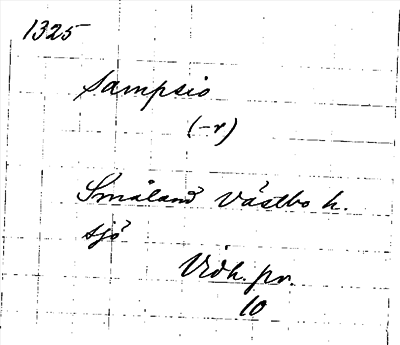 1325
Sampsio
(-r)
Småland Västbo h.
sjö
Vidh. pr.
10